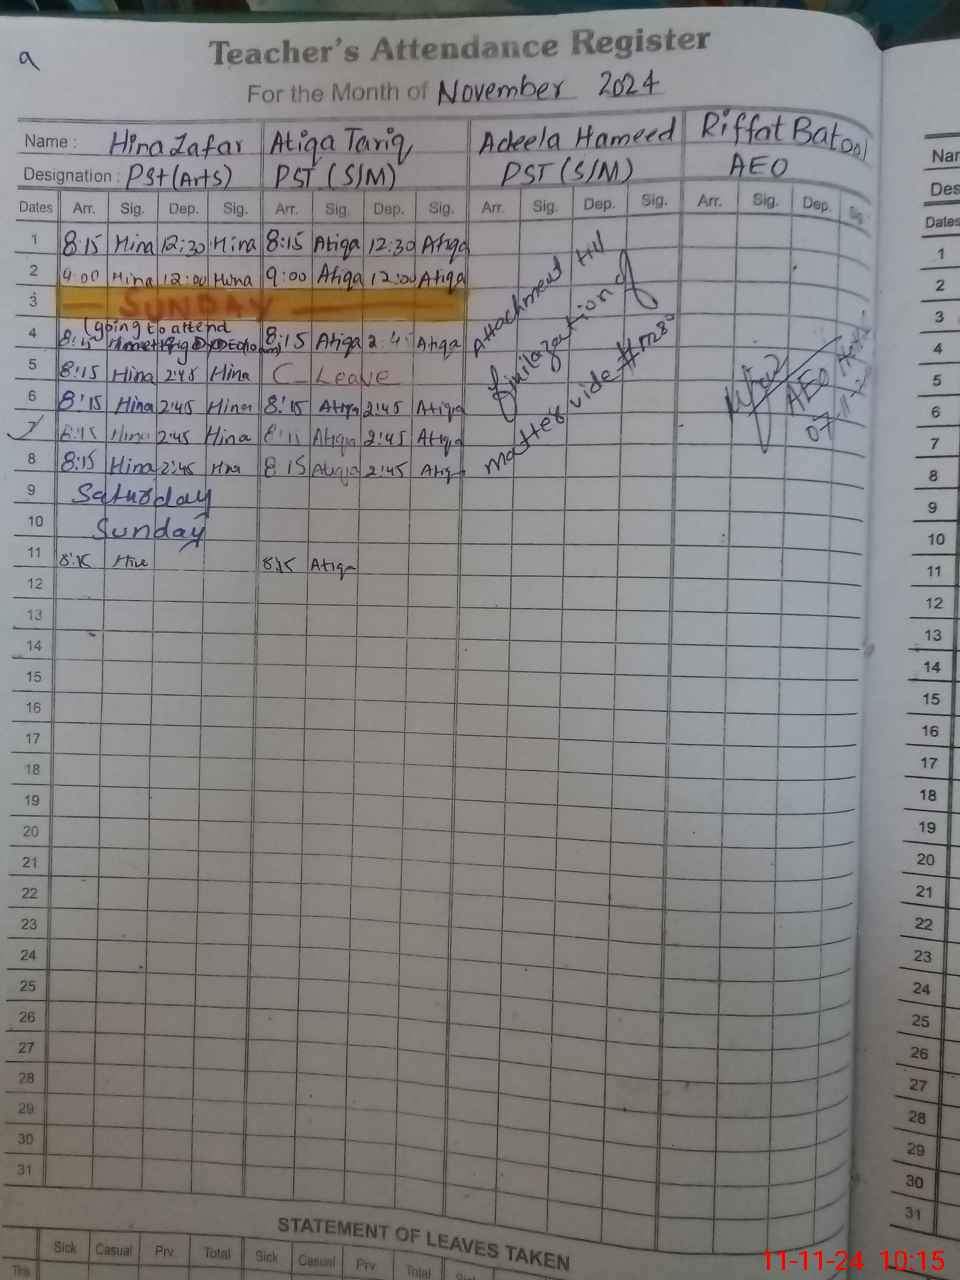 a
Teacher's Attendance Register
For the Month of November 2024
Name : Hina Zafar Atiqa Tariq Adeela Hameed Riffat Batool
Designation : PSt (Arts) PST (S/M) PST (S/M) AEO
Dates Arr. Sig. Dep. Sig. Arr. Sig. Dep. Sig. Arr. Sig. Dep. Sig. Arr. Sig. Dep. Sig.
1 8:15 Hina 12:30 Hina 8:15 Atiqa 12:30 Atiqa
2 9:00 Hina 12:00 Hina 9:00 Atiqa 12:00 Atiqa
3 SUNDAY
(going to attend
4 8:15 8:15 Atiqa 2:45 Atiqa
5 8:15 Hina 2:45 Hina C_Leave
6 8:15 Hina 2:45 Hina 8:15 Atiqa 2:45 Atiqa
7 8:15 Hina 2:45 Hina Atiqa 2:45 Atiqa
8 8:15 Hina 2:45 Hina 8 15 Atiqa 2:45 Atiq
9 Saturday
10 Sunday
11 8:15 8:15 Atiqa
12
13
14
15
16
17
18
19
20
21
22
23
24
25
26
27
28
29
30
31
Attachment till
finilazation of
matter vide
AEO
07
STATEMENT OF LEAVES TAKEN
Sick Casual Prv Total Sick Casual Prv Total
This
Nar
Des
Dates
1
2
3
4
5
6
7
8
9
10
11
12
13
14
15
16
17
18
19
20
21
22
23
24
25
26
27
28
29
30
31
11-11-24 10:15